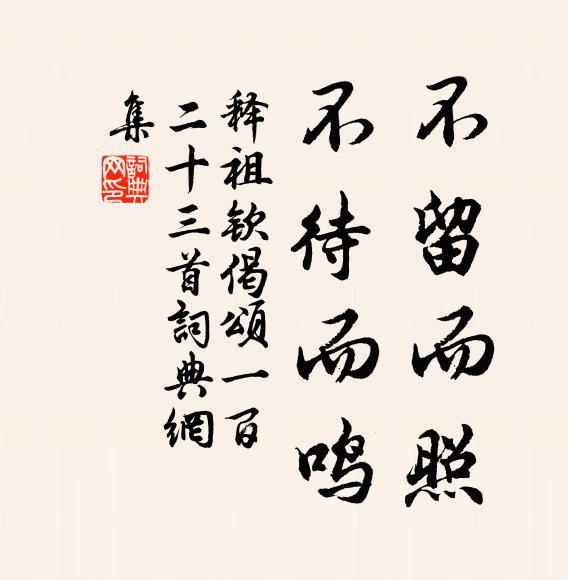 不留而照
不待而鸣
释祖钦偈頌一百
二十三首詞典網
集
詞典
网印